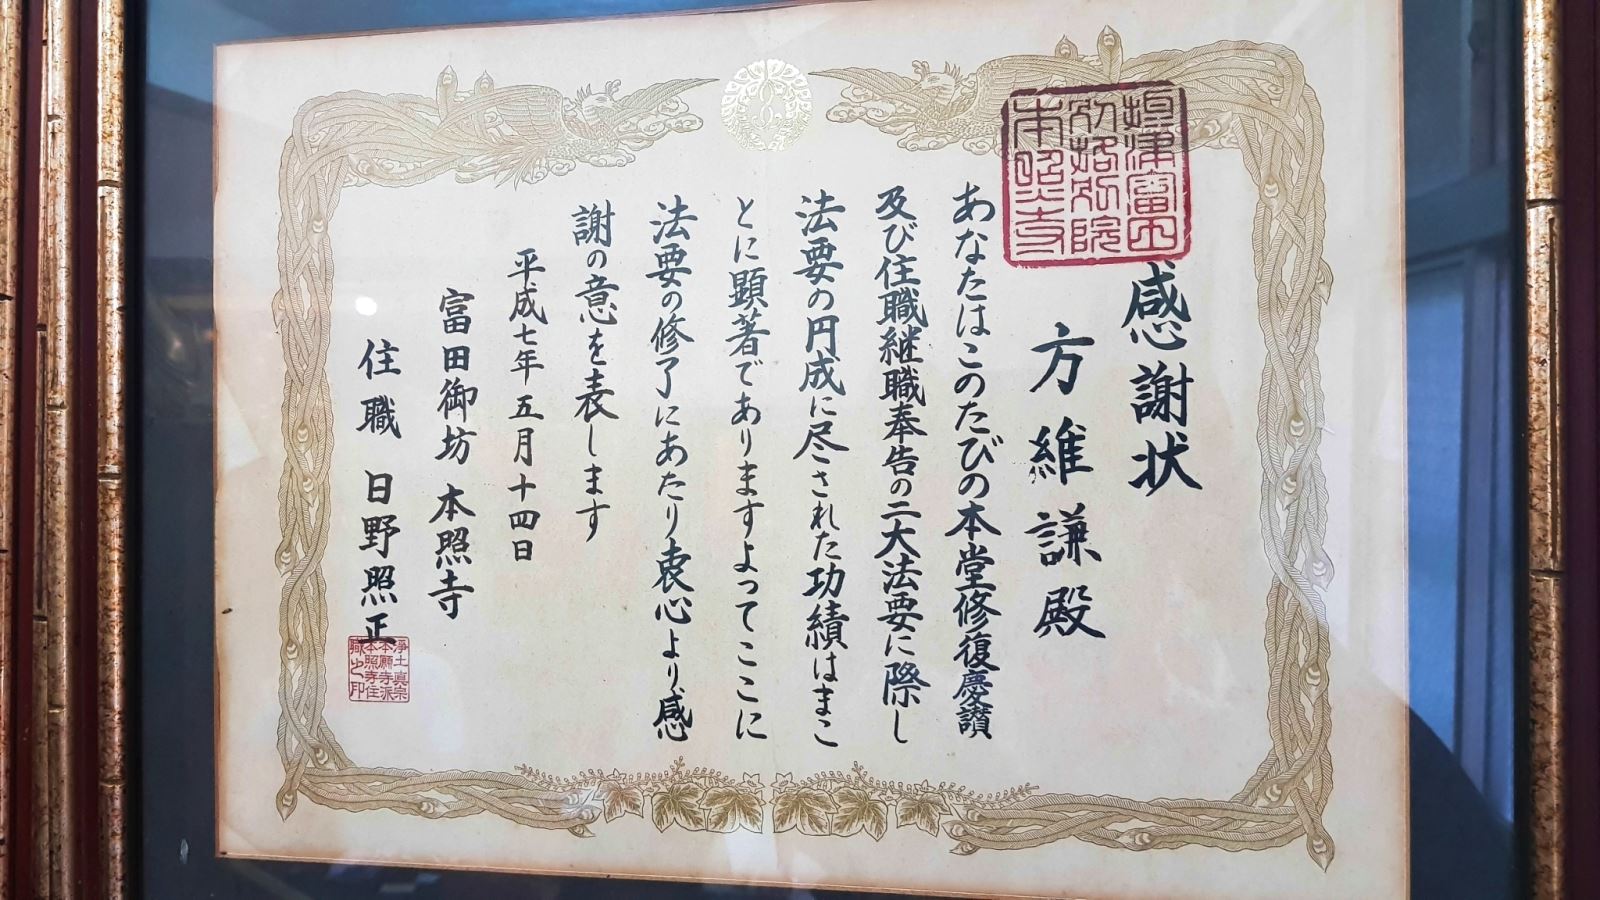 感謝状
方維謙殿
あなたはこのたびの本堂修復慶讃
及び住職継職奉告の二大法要に際し
法要の円成に尽された功績はまこ
とに顕著でありますよってここに
法要の修了にあたり衷心より感
謝の意を表します
平成七年五月十四日
富田御坊 本照寺
住職 日野照正
摂津富田
別格別院
本照寺
浄土真宗
本願寺派
本照寺住
職之印